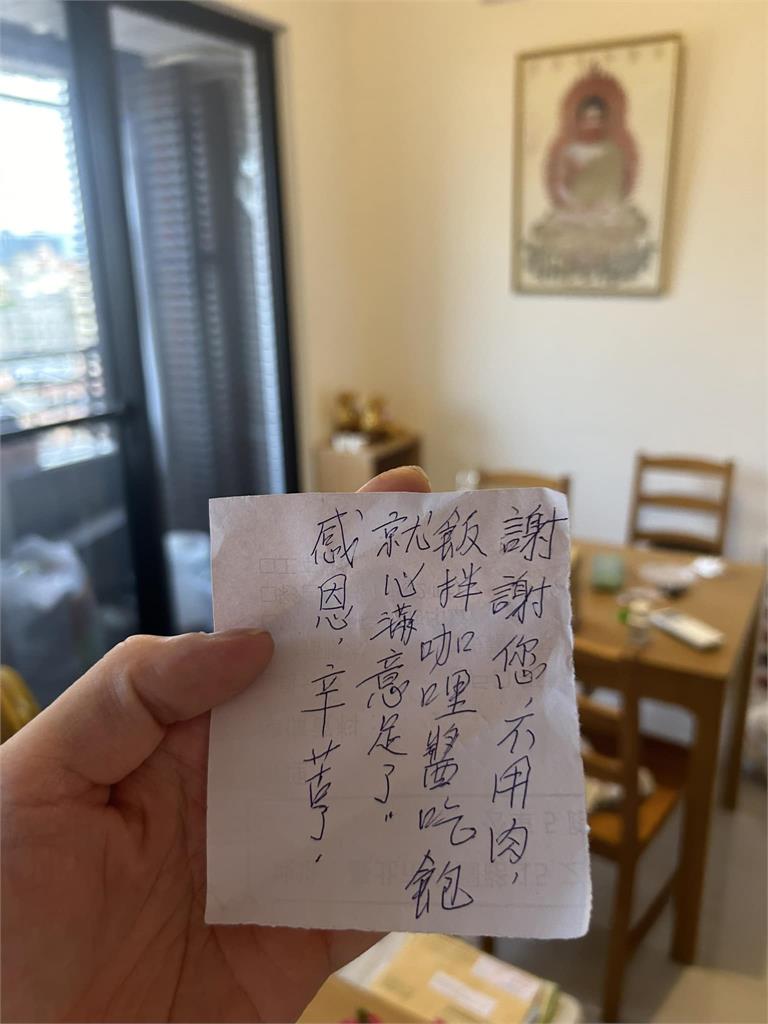 謝謝您,不用肉,
飯拌咖哩醬吃飽
就心滿意足了"
感恩,辛苦了,